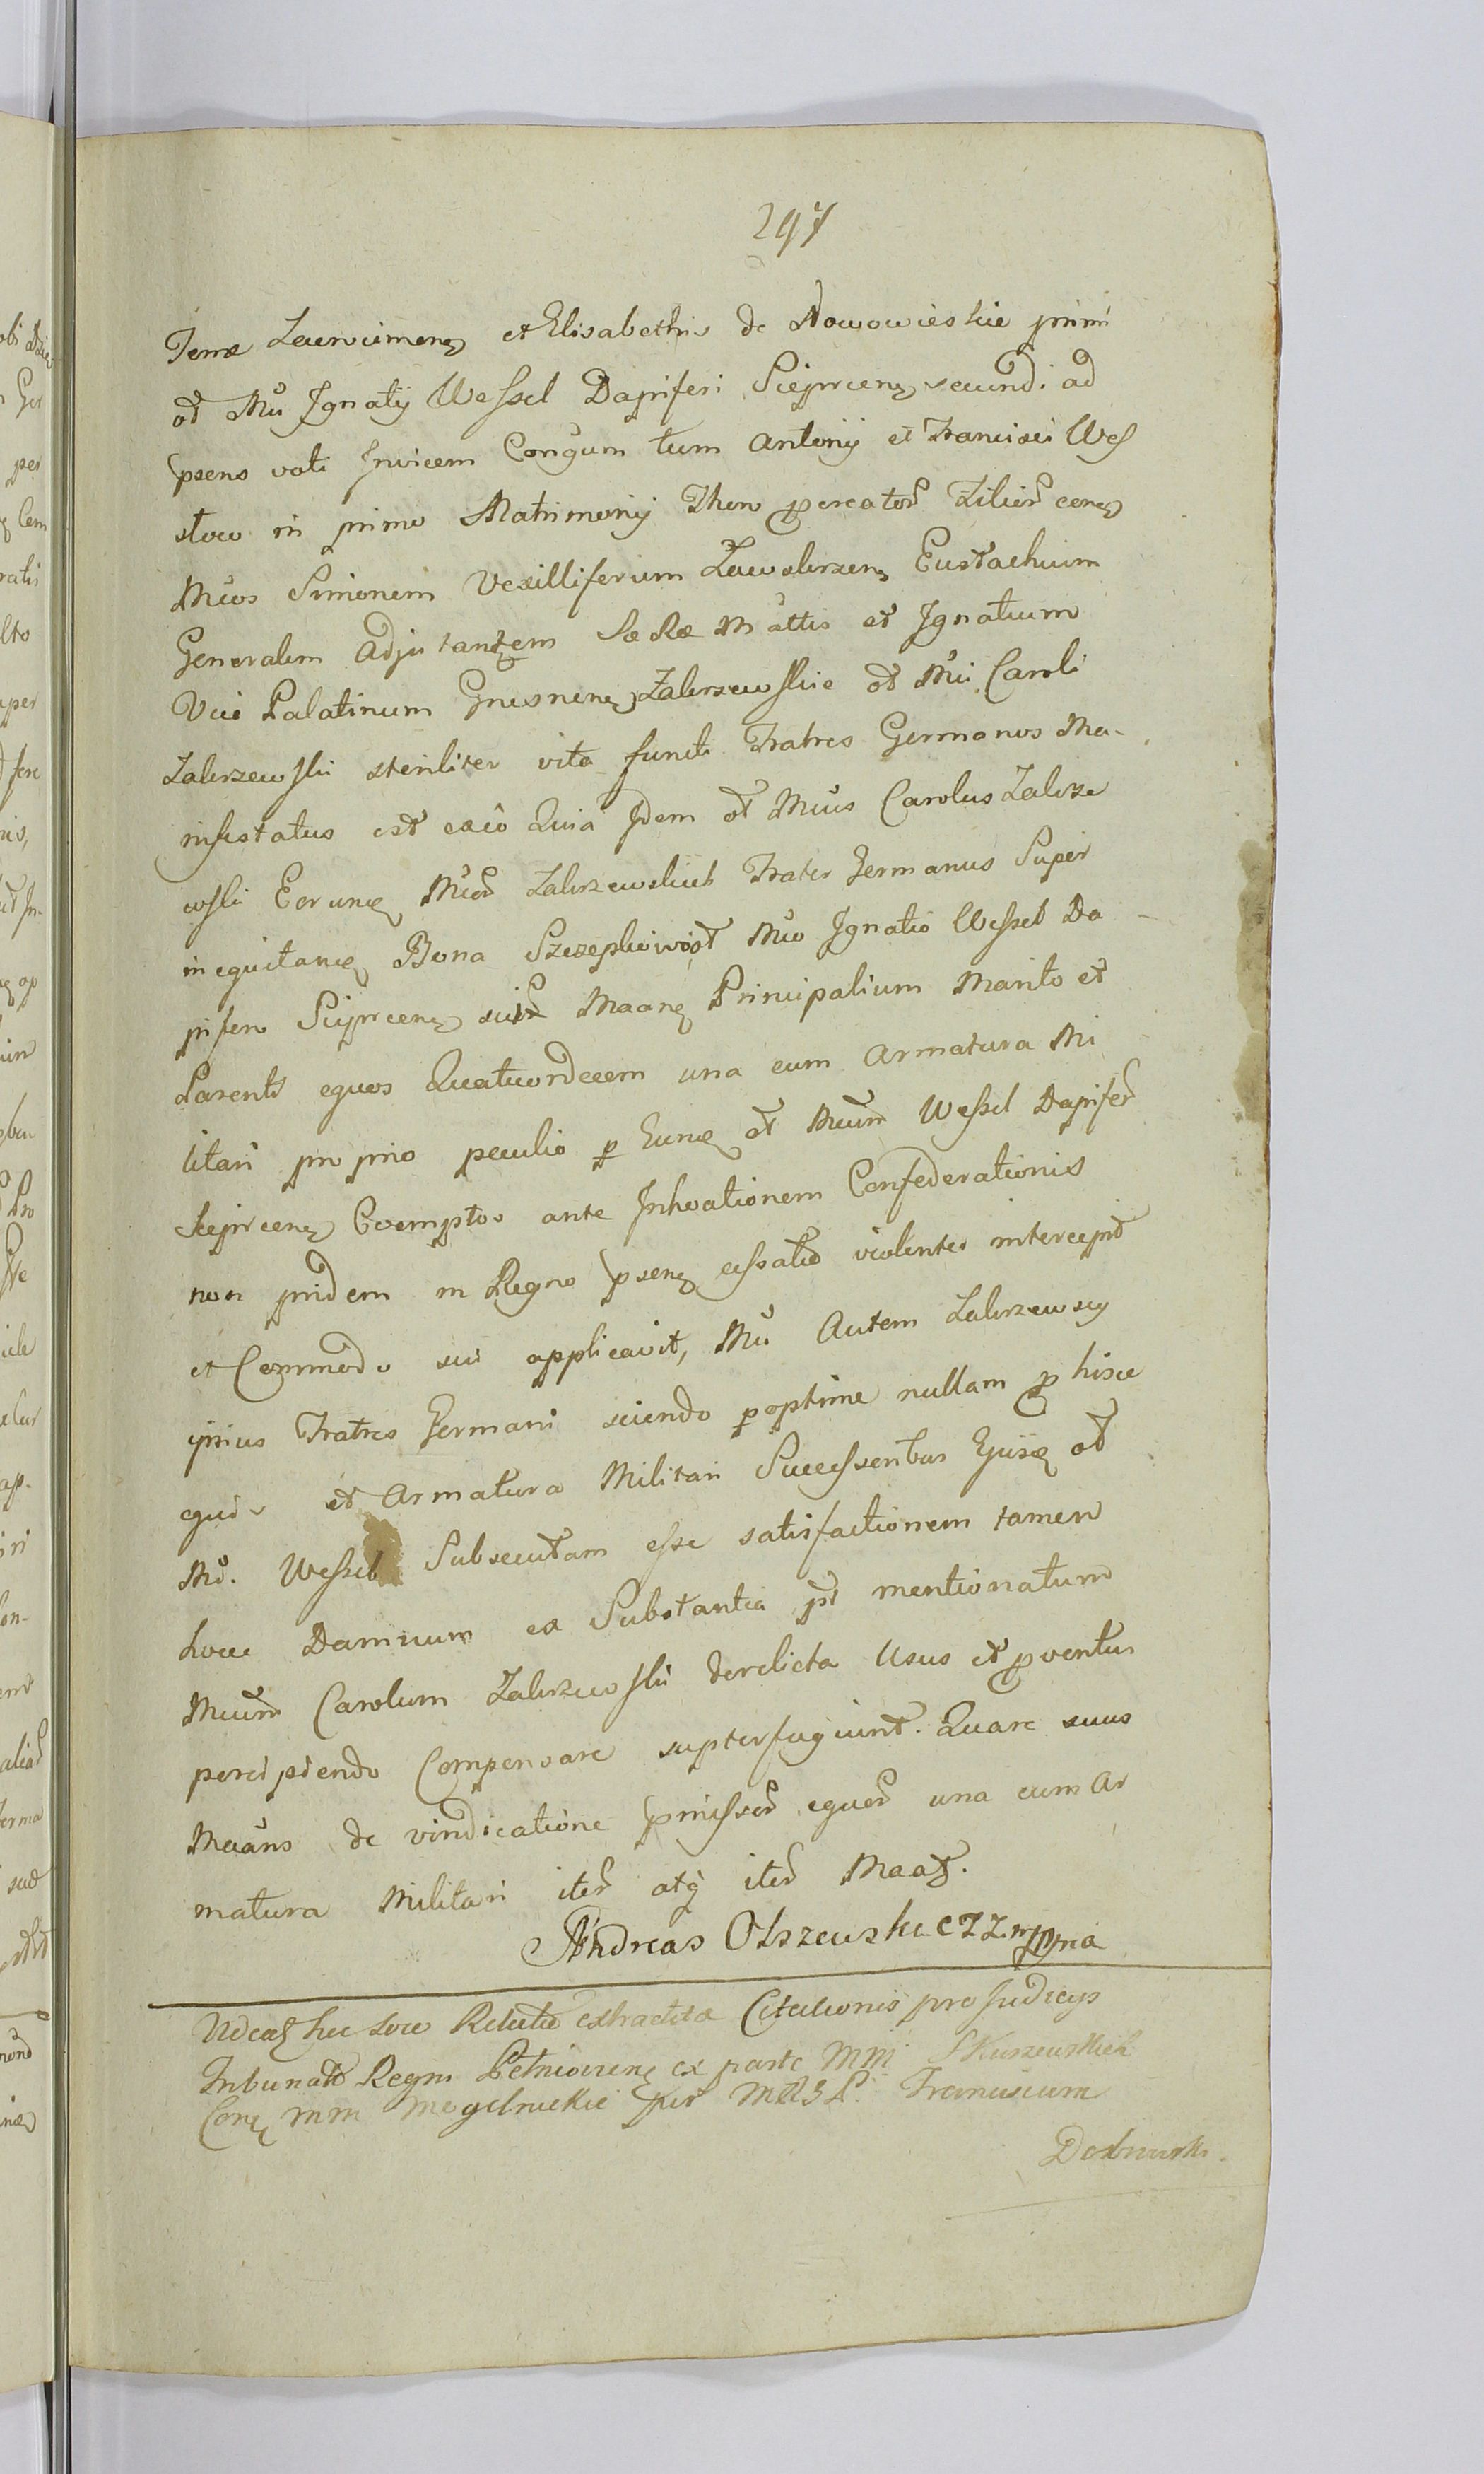 297
Terræ et Elisabethis de Nowowieskie primi
ot Mu Ignatij Wessel Dapiferi Sieprcen secundi ad
psens voti Invicem Congum tum Antonij et Francisci Wes
slow in primo Matrimonij Thoro pcreator Filior conq
Mcos Simonem Vexilliferum Eustachium
Generalem Adjutantem Sæ Ræ Mattis et Ignatium
Vice Palatinum Gnesnenq Zakrzewskie ot Mci Caroli
Zakrzewski steriliter vita functi Fratres Germanos Ma-
nifestatus est exeo Quia Idem ot Mcus Carolus Zakrze
wski Eorunq Mcor Zakrzewskich Frater Germanus Super
inequitanq Bona ot Mco Ignatio Wessel Da
pifero Sieprcenq suor Maanq Principalium Marito et
Parenti equos Quatuordecem una cum Armatura Mi
litari proprio peculio p Eunq ot Mcum Wessel Dapifer
Sieprcenq Coemptos ante Inhoationem Confederationis
non pridem in Regno psenq cessatæ violenter intercepit
et Commodo sui applicavit, Mci Autem Zakrzewscy
ipsius Fratres Germani sciendo poptime nullam p hisce
equis et Armatura Militari Successoribus Ejusq ot
Mci. Wessel Subsecutam esse satisfactionem tamen
hocce Damnum ex Substantia pt mentionatum
Mcum Carolum Zakrzewski derelicta Usus et pventus
percipiendo Compensare supterfugiunt. Quare suus
Maans de vindicatione pmissor equor una cum Ar
matura Militari iter atq iter Maat.
Andreas Olszewski C Z Z mppria
hic loco Relatio extractæ Citationis pro Judicys
Tribunalis Regni ex parte MM Skurzewskich
Conq MM Mogelnickie per Franciscum